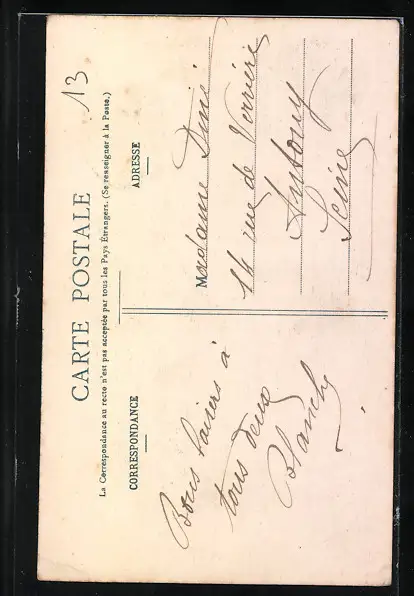 13
CARTE POSTALE
La Correspondance au recto n'est pas acceptée par tous les Pays Étrangers. (Se renseigner à la Poste.)
CORRESPONDANCE
Bons baisers à
tous deux
Blanche
ADRESSE
Madame Diné
14 rue de Verrières
Antony
Seine